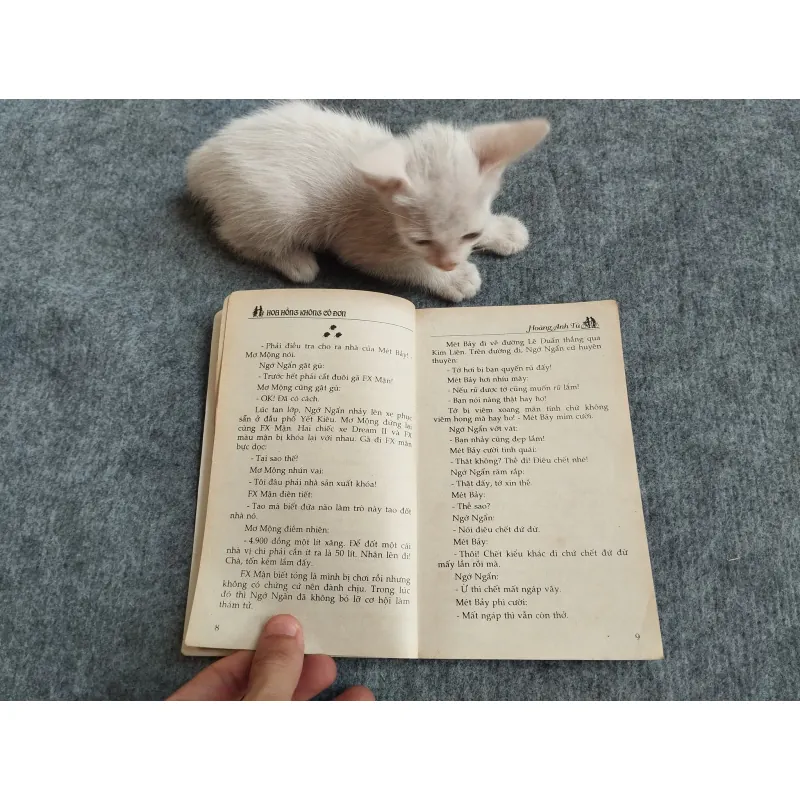 HOA HỒNG KHÔNG CÔ ĐƠN
- Phải điều tra cho ra nhà của Mét Bảy!
Mơ Mộng nói.
Ngớ Ngẩn gật gù:
- Trước hết phải cắt đuôi gã FX Mận!
Mơ Mộng cũng gật gù:
- OK! Đã có cách.
Lúc tan lớp, Ngớ Ngẩn nhảy lên xe phục
sẵn ở đầu phố Yết Kiêu. Mơ Mộng đứng lại
cùng FX Mận. Hai chiếc xe Dream II và FX
màu mận bị khóa lại với nhau. Gã đi FX mận
bực dọc:
- Tại sao thế?
Mơ Mộng nhún vai:
- Tôi đâu phải nhà sản xuất khóa!
FX Mận điên tiết:
- Tao mà biết đứa nào làm trò này tao đốt
nhà nó.
Mơ Mộng điềm nhiên:
- 4.900 đồng một lít xăng. Để đốt một cái
nhà vị chi phải cần ít ra là 50 lít. Nhân lên đi!
Chà, tốn kém lắm đấy.
FX Mận biết tỏng là mình bị chơi rồi nhưng
không có chứng cứ nên đành chịu. Trong lúc
đó thì Ngớ Ngẩn đã không bỏ lỡ cơ hội làm
thám tử.
8
Hoàng Anh Tú
Mét Bảy đi về đường Lê Duẩn thẳng qua
Kim Liên. Trên đường đi, Ngớ Ngẩn cứ huyên
thuyên:
- Tớ hơi bị bạn quyến rũ đấy!
Mét Bảy hơi nhíu mày:
- Nếu rũ được tớ cũng muốn rũ lắm!
- Bạn nói năng thật hay ho!
- Tớ bị viêm xoang mãn tính chứ không
viêm họng mà hay ho! - Mét Bảy mỉm cười.
Ngớ Ngẩn vớt vát:
- Bạn nhảy cũng đẹp lắm!
Mét Bảy cười tinh quái:
- Thật không? Thề đi! Điêu chết nhé!
Ngớ Ngẩn răm rắp:
- Thật đấy, tớ xin thề.
Mét Bảy:
- Thề sao?
Ngớ Ngẩn:
- Nói điêu chết đứ đừ.
Mét Bảy:
- Thôi! Chết kiểu khác đi chứ chết đứ đừ
mấy lần rồi mà.
Ngớ Ngẩn:
- Ừ thì chết mất ngáp vậy.
Mét Bảy phì cười:
- Mất ngáp thì vẫn còn thở.
9